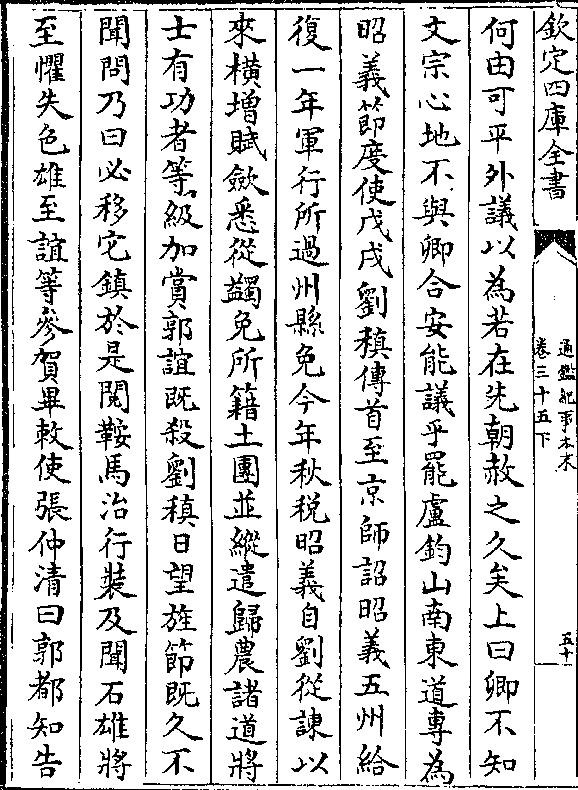 欽定四庫全書
通鑑紀事本末
卷三十五下
五十一
何由可平外議以為若在先朝赦之久矣上曰卿不知
文宗心地不與卿合安能議乎罷盧鈞山南東道專為
昭義節度使戊戌劉稹傳首至京師詔昭義五州給
復一年軍行所過州縣免今年秋税昭義自劉從諫以
來橫增賦歛悉從蠲免所籍土團並縱遣歸農諸道將
士有功者等級加賞郭誼既殺劉稹日望旌節既久不
聞問乃曰必移它鎮於是閲鞍馬治行裝及聞石雄將
至懼失色雄至誼等參賀畢敕使張仲清曰郭都知告